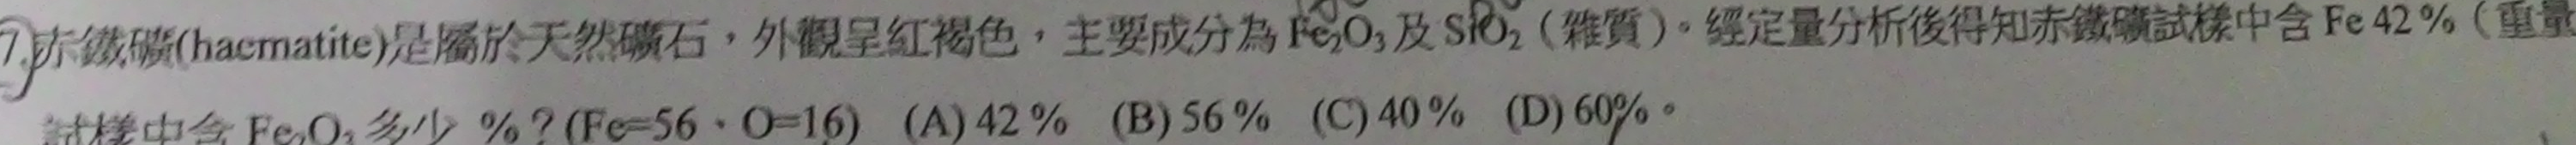 7.赤鐵礦(haematite)是屬於天然礦石，外觀呈紅褐色，主要成分為 Fe₂O₃ 及 SiO₂（雜質）。經定量分析後得知赤鐵礦試樣中含 Fe 42%（重量
試樣中含 Fe₂O₃ 多少 %？(Fe=56、O=16) (A) 42% (B) 56% (C) 40% (D) 60%。